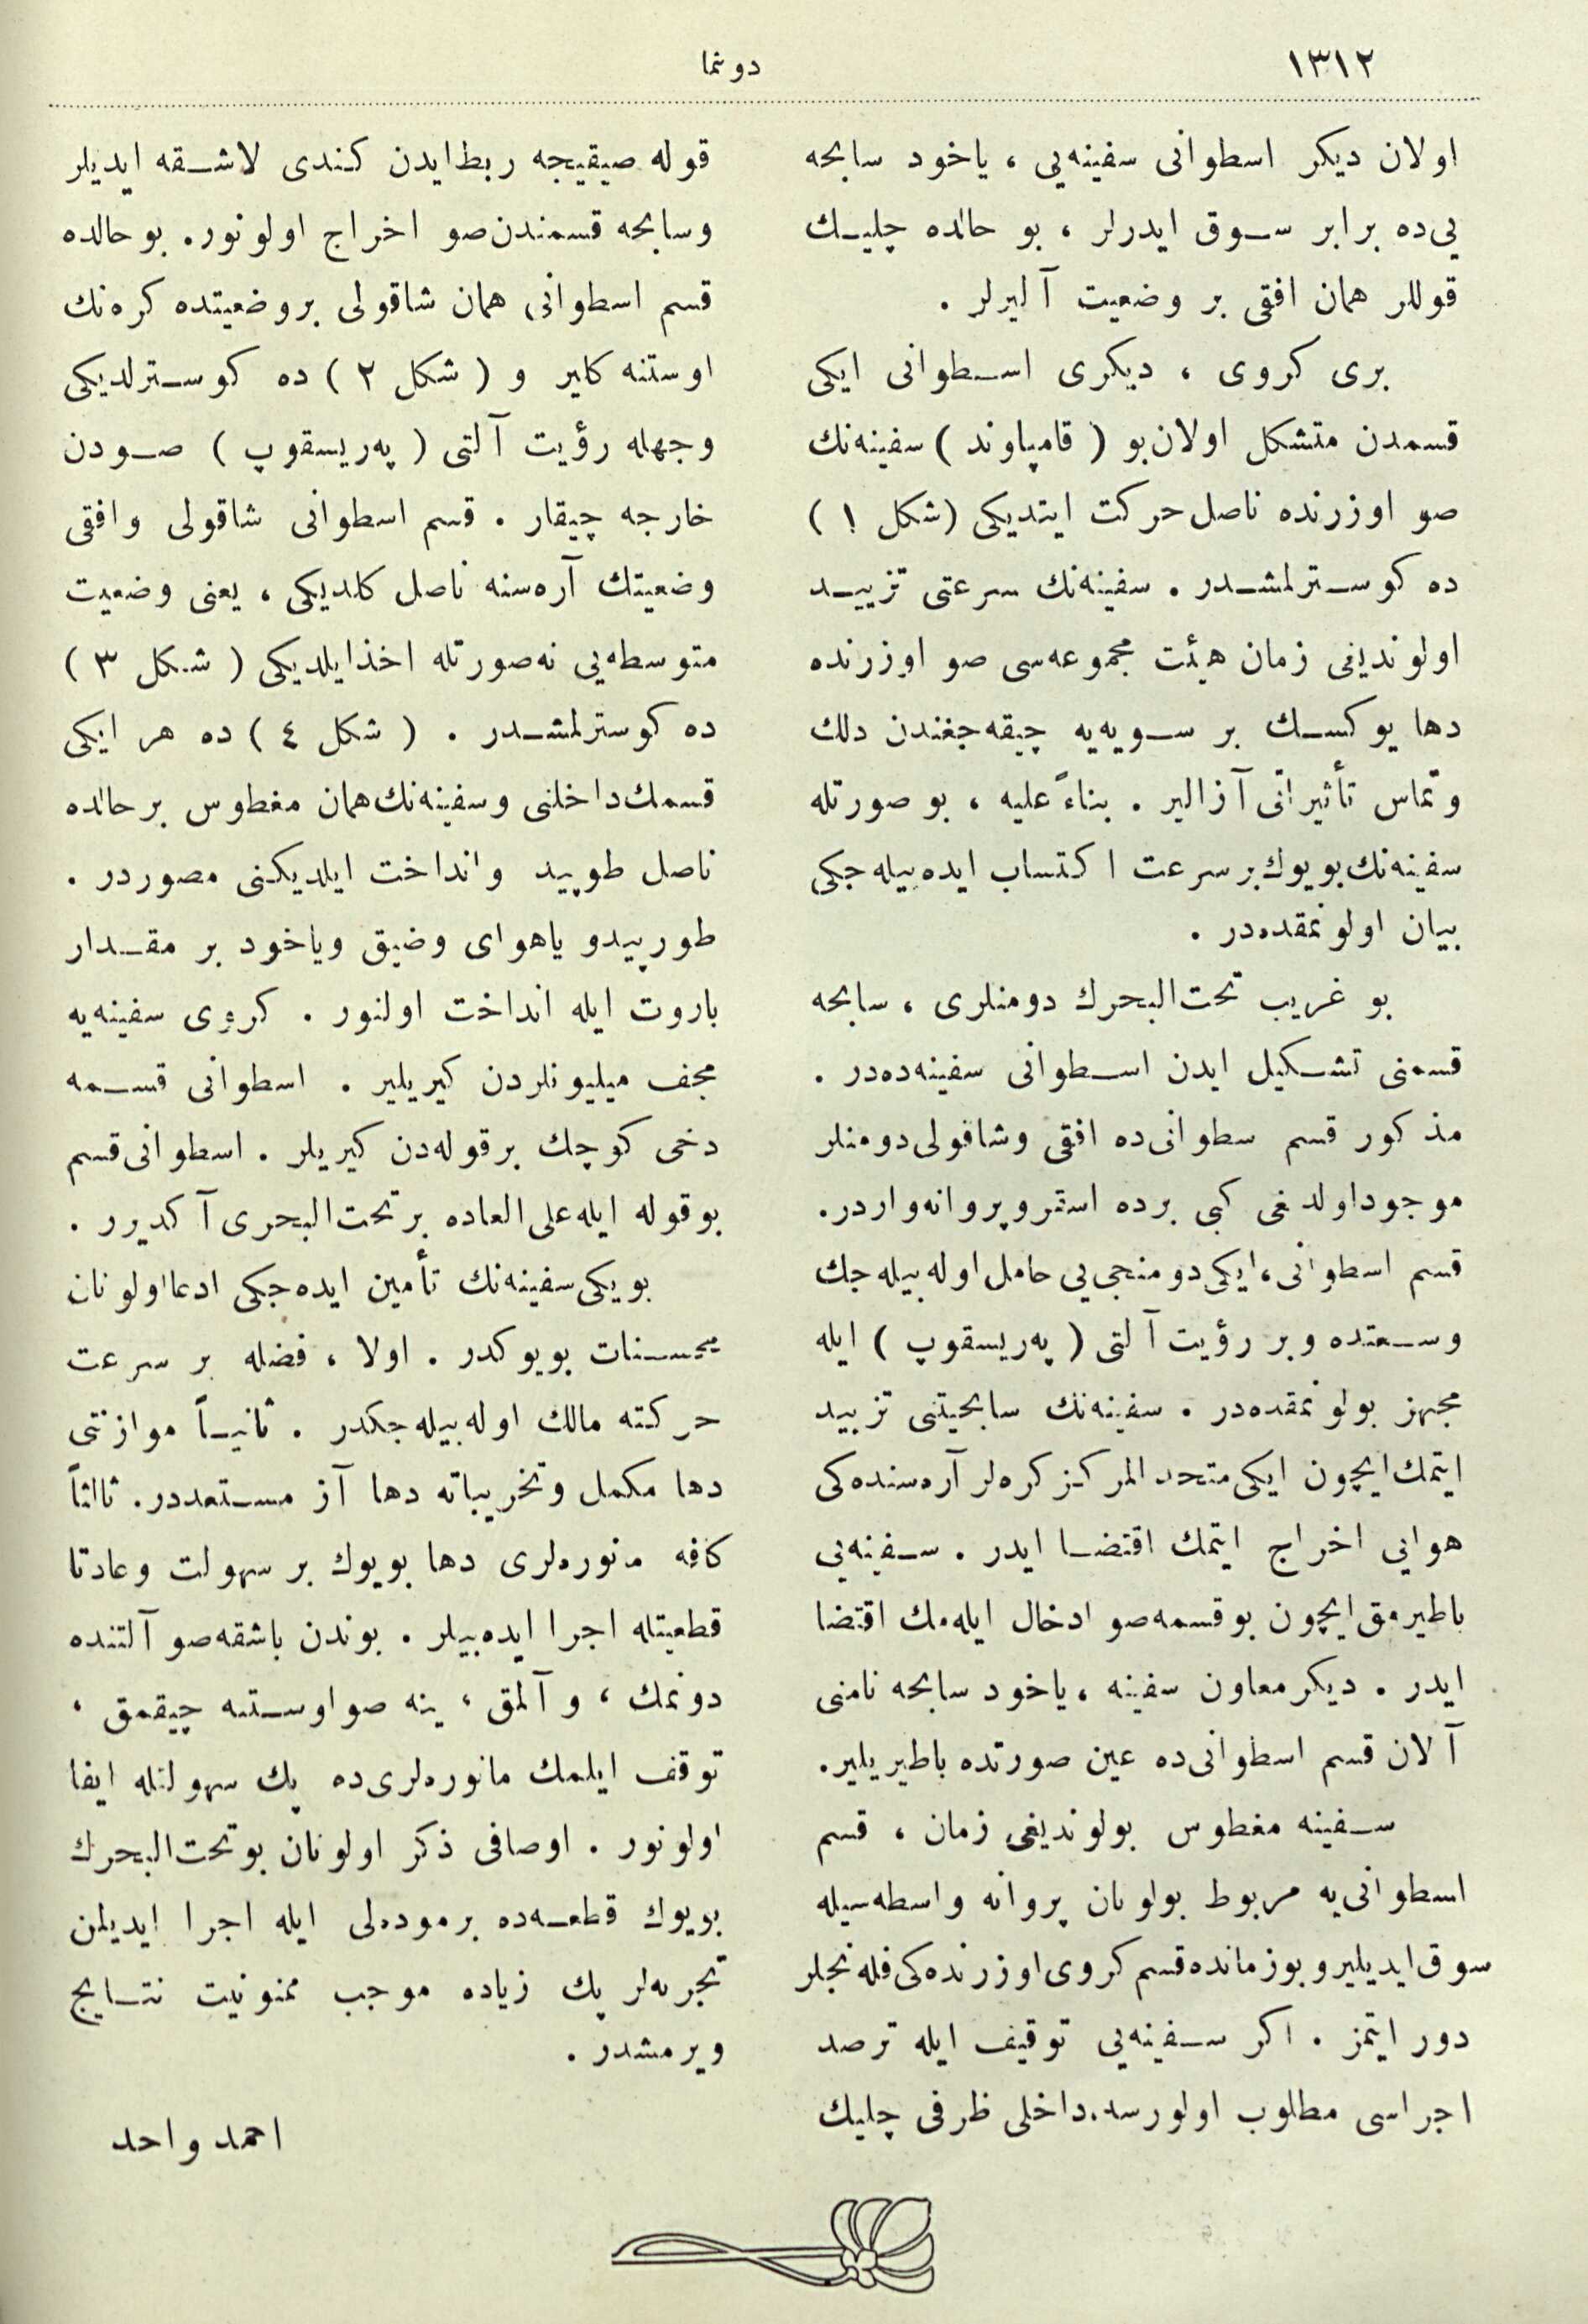 ١٣١٢
دونما
اولان ديكر اسطوانى سفينه‌يى ، ياخود سابحه
يى‌ده برابر سوق ايدرلر ، بو حالده چليك
قوللر همان افقى بر وضعيت آليرلر .
برى كروى ، ديكرى اسطوانى ايكى
قسمدن متشكل اولان بو ( قامپاوند ) سفينه‌نك
صو اوزرنده ناصل حركت ايتديكى (شكل ١ )
ده كوسترلمشدر . سفينه‌نك سرعتى تزييد
اولونديغى زمان هيئت مجموعه‌سى صو اوزرنده
دها يوكسك بر سويه‌يه چيقه‌جغندن دلك
وتماس تأثيراتى آزالير . بناءً عليه ، بو صورتله
سفينه‌نك بويوك بر سرعت اكتساب ايده‌بيله‌جكى
بيان اولونمقده‌در .
بو غريب تحت‌البحرك دومنلرى ، سابحه
قسمنى تشكيل ايدن اسطوانى سفينه‌ده‌در .
مذكور قسم سطوانى‌ده افقى وشاقولى دومنلر
موجود اولدغى كبى برده استمرو پروانه واردر.
قسم اسطوانى، ايكى دومنجى‌يى حامل اوله‌بيله‌جك
وسعتده وبر رؤيت آلتى ( په‌ريسقوپ ) ايله
مجهز بولونمقده‌در . سفينه‌نك سابحيتنى تزييد
ايتمك ايچون ايكى متحد المركز كره‌لر آره‌سنده‌كى
هوايى اخراج ايتمك اقتضا ايدر . سفينه‌يى
باطيرمق ايچون بو قسمه صو ادخال ايله‌مك اقتضا
ايدر . ديكر معاون سفينه ، ياخود سابحه نامنى
آلان قسم اسطوانى‌ده عين صورتده باطيريلير.
سفينه مغطوس بولونديغى زمان ، قسم
اسطوانى‌يه مربوط بولونان پروانه واسطه‌سيله
سوق ايديلير و بو زمانده قسم كروى اوزرنده‌كى فله‌نجلر
دور ايتمز . اكر سفينه‌يى توقيف ايله ترصد
اجراسى مطلوب اولورسه، داخلى ظرفى چليك
قوله صيقيجه ربط ايدن كندى لاشقه ايديلر
وسابحه قسمندن صو اخراج اولونور. بو حالده
قسم اسطوانى همان شاقولى بر وضعيتده كره‌نك
اوستنه كلير و ( شكل ٢ ) ده كوسترلديكى
وجهله رؤيت آلتى ( په‌ريسقوپ ) صودن
خارجه چيقار . قسم اسطوانى شاقولى وافقى
وضعيتك آره‌سنه ناصل كلديكى ، يعنى وضعيت
متوسطه‌يى نه‌صورتله اخذ ايلديكى ( شكل ٣ )
ده كوسترلمشدر . ( شكل ٤ ) ده هر ايكى
قسمك داخلنى وسفينه‌نك همان مغطوس بر حالده
ناصل طوپيد وانداخت ايلديكنى مصوردر .
طورپيدو ياهواى وضيق وياخود بر مقدار
باروت ايله انداخت اولنور . كروى سفينه‌يه
مجف ميليونلردن كيريلير . اسطوانى قسمه
دخى كوچك بر قوله‌دن كيريلر . اسطوانى قسم
بو قوله ايله على العاده بر تحت‌البحرى آكديرر .
بو يكى سفينه‌نك تأمين ايده‌جكى ادعا اولونان
محسنات بويوكدر . اولا ، فضله بر سرعت
حركته مالك اوله‌بيله‌جكدر . ثانياً موازنتى
دها مكمل وتخريباته دها آز مستعددر. ثالثاً
كافه مانوره‌لرى دها بويوك بر سهولت وعادتا
قطعيتله اجرا ايده‌بيلر . بوندن باشقه صو آلتنده
دونمك ، و آلمق ، ينه صو اوستنه چيقمق ،
توقف ايلمك مانوره‌لرى‌ده پك سهولتله ايفا
اولونور . اوصافى ذكر اولونان بو تحت‌البحرك
بويوك قطعه‌ده بر موده‌لى ايله اجرا ايديلن
تجربه‌لر پك زياده موجب ممنونيت نتايج
ويرمشدر .
احمد واحد